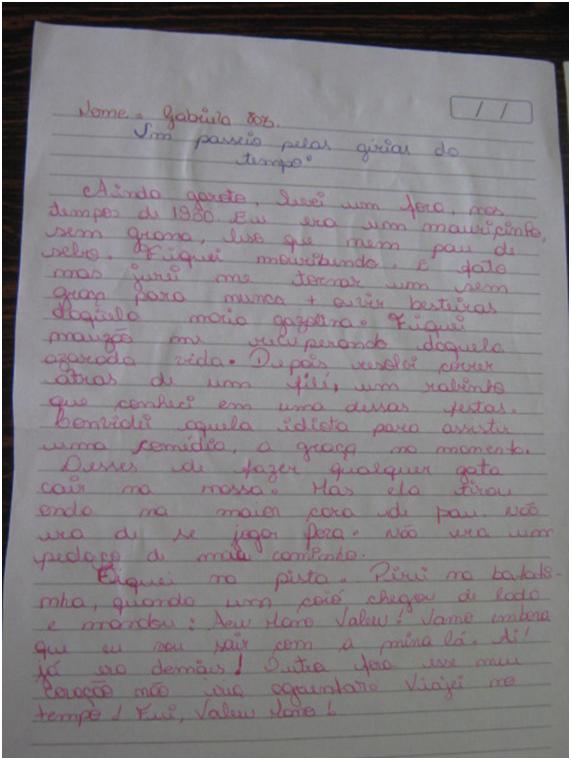 Nome = Gabriela 803.
Um passeio pelas gírias do
tempo.
Ainda garoto, levei um fora, nos
tempos de 1930. Eu era um mauricinho,
sem grana, liso que nem pau de
sebo. Fiquei moribundo, é fato
mas jurei me tornar um sem
graça para nunca + ouvir besteiras
daquela maria gazolina. Fiquei
manzão me recuperando daquela
azarada vida. Depois resolvi correr
atras de um filé, um rabinho
que conheci em uma dessas festas.
Convidei aquela idiota para assistir
uma comédia, a graça no momento.
Desses de fazer qualquer gata
cair na nossa. Mas ela tirou
onda na maior cara de pau. Não
era de se jogar fora. Não era um
pedaço de mau caminho.
Fiquei na pista. Pirei na batati-
nha, quando um coió chegou de lado
e mandou: Aew Mano Valeu! Vamo embora
que eu vou sair com a mina lá. Ai!
já era demais! Outra fora esse meu
coração não iria aguentar. Viajei no
tempo! Fui, Valeu Mano!